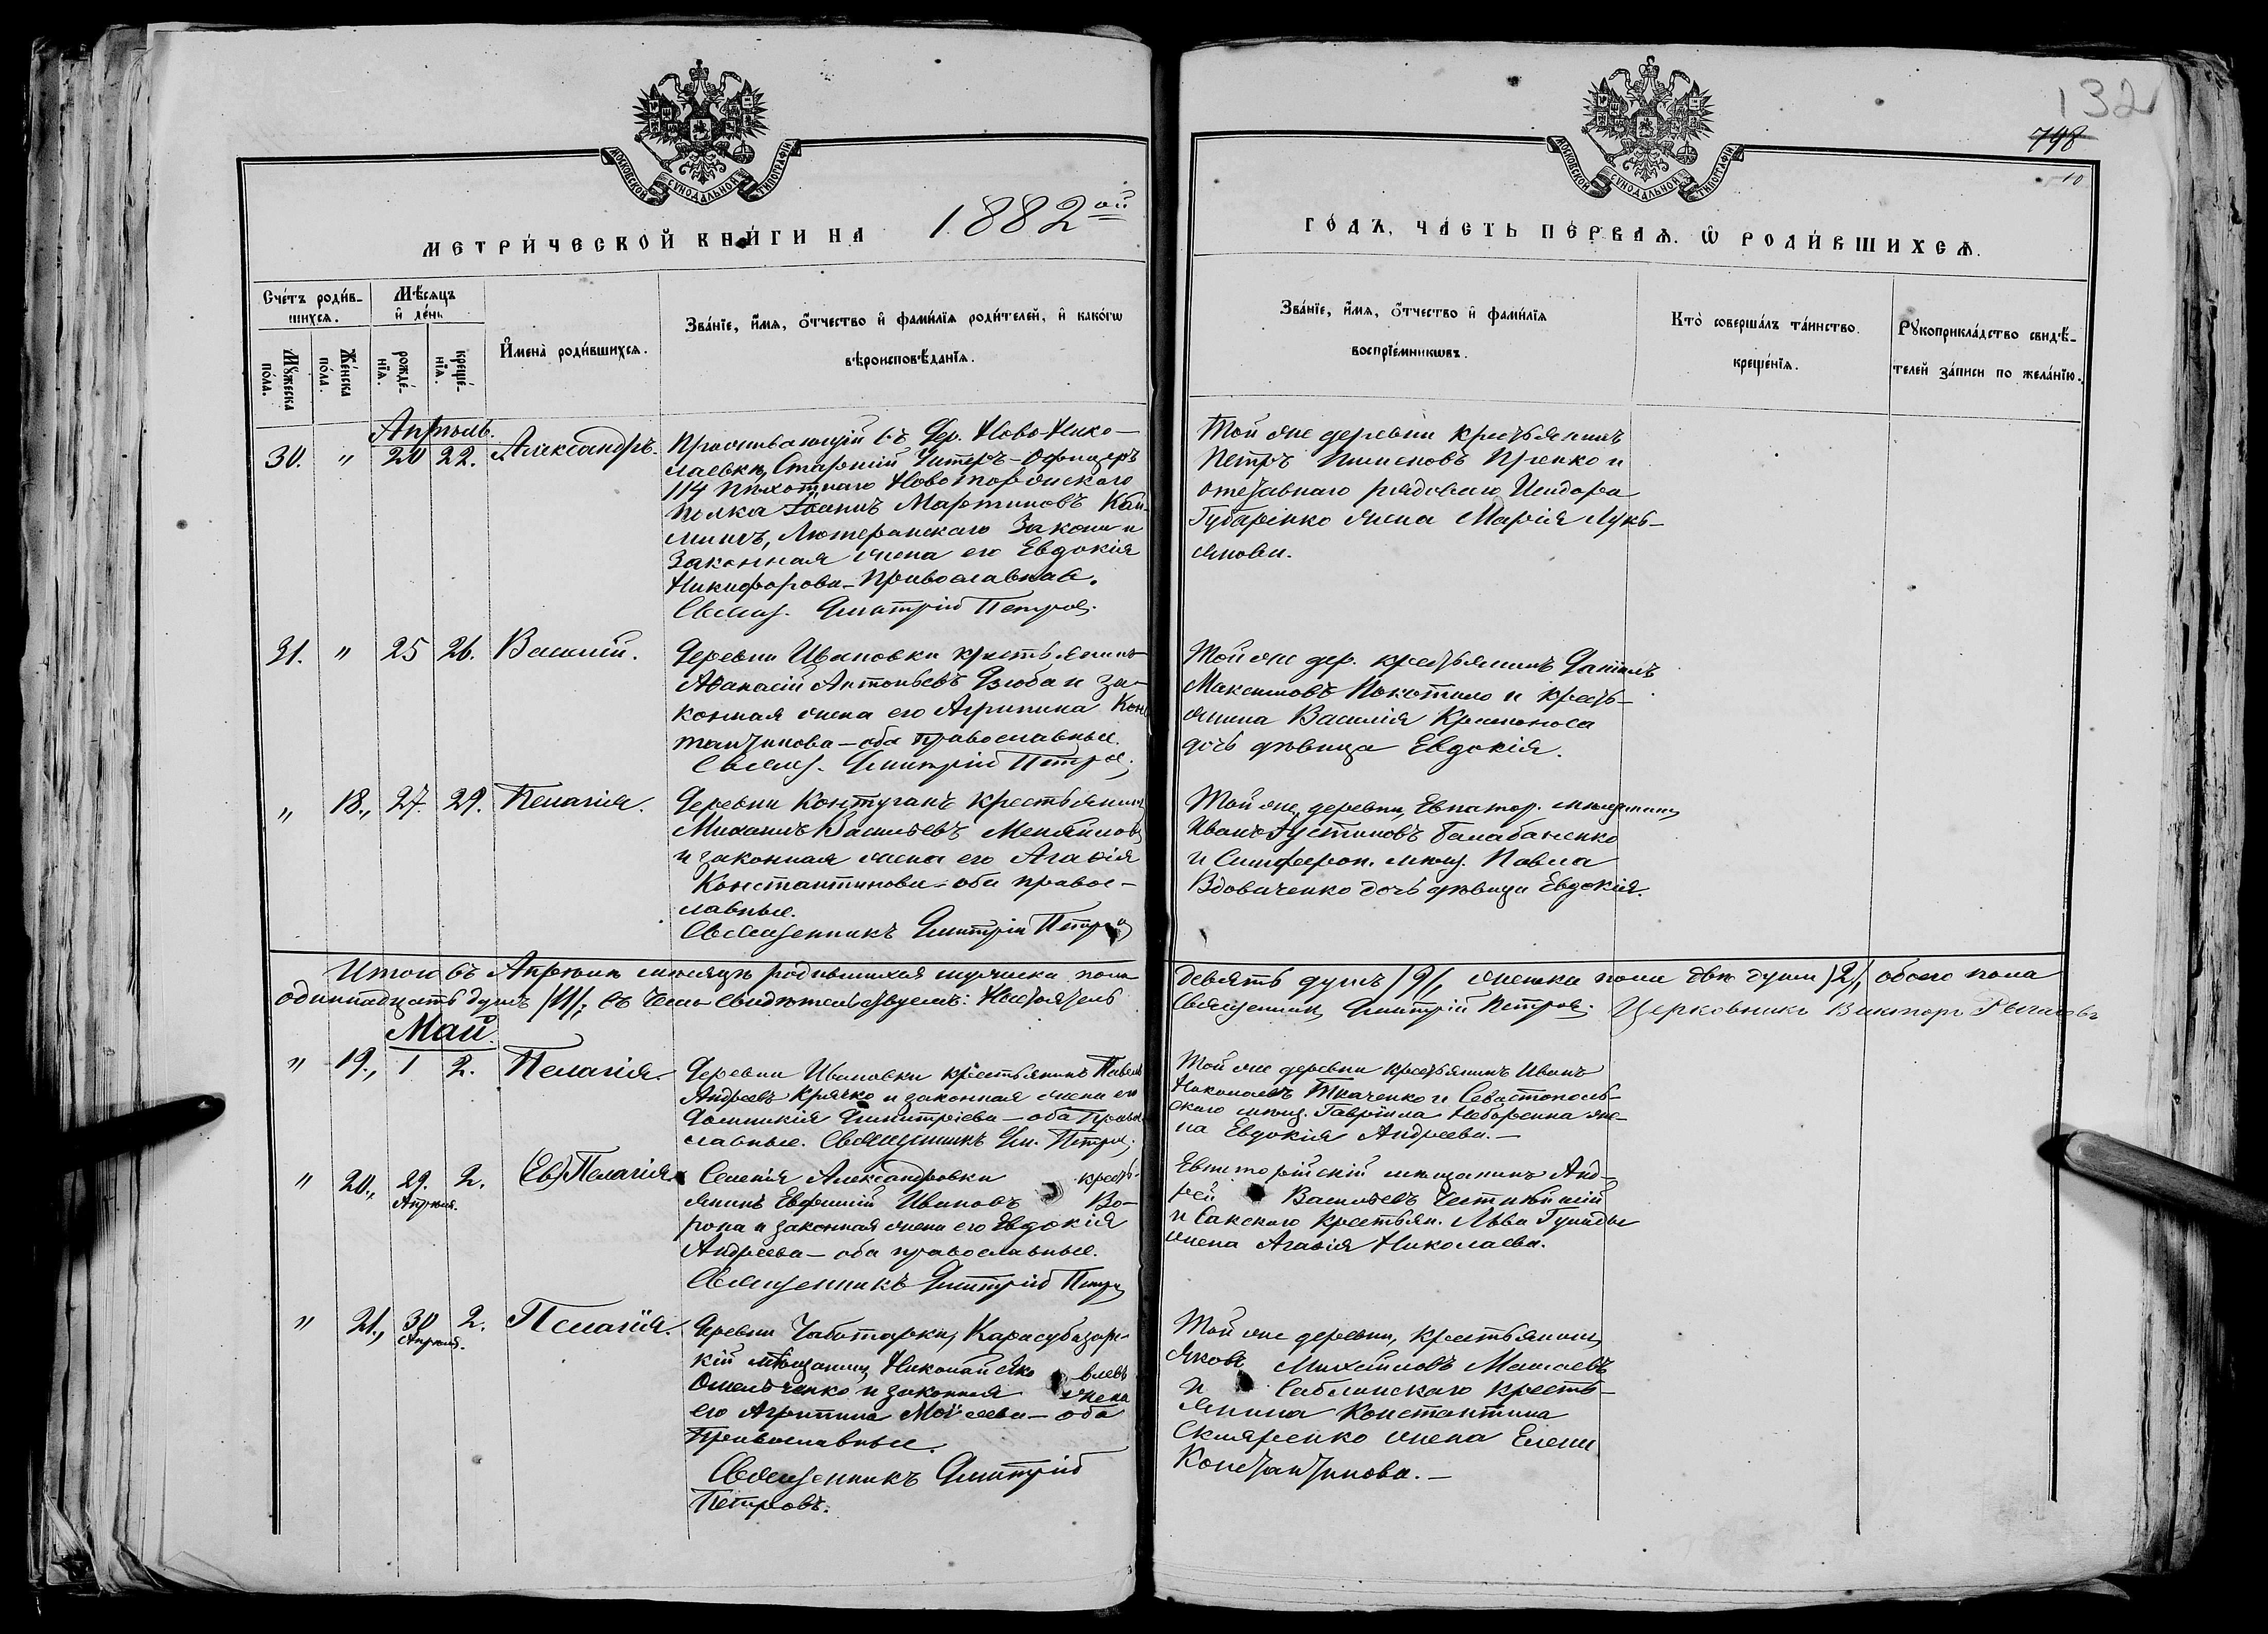 132
798
10
МОСКОВСКОЙ СѴНОДАЛЬНОЙ ТИПОГРАФІИ
МЕТРИ́ЧЕСКОЙ КНИ́ГИ НА 1882ой
Сче́тъ роди́в-
шихся.
Мѣ́сяцъ
и҆ де́нь
Мꙋ́жеска
по́ла.
Же́нска
по́ла.
рожде́-
нїя.
креще́-
нїя.
И҆мена̀ роди́вшихся.
Зва́нїе, и҆́мя, ѻ҆́тчество и҆ фами́лїя роди́телей, и҆ како́гѡ
вѣроисповѣ́данїя.
Апрѣль.
30. " 20 22. Александръ.
Проживающій въ Дер. Ново-Нико-
лаевки, Старшій Унтеръ-Офицеръ
114 Пѣхотнаго Новоторжскаго
Полка Іванъ Мартиновъ
Лютеранскаго Закона и
Законная жена его Евдокія
Никифорова - Православная.
Свящ. Димитрій Петров.
31. " 25 26. Василій.
Деревни Ивановки крестьянинъ
Аѳанасій Антоньевъ Дзюба и за-
конная жена его Агрипина Конс
тантинова - оба православные.
Свящ. Димитрій Петров.
" 18., 27. 29. Пелагія.
Деревни Контуганъ крестьянинъ
Михаилъ Васильевъ
и законная жена его Агаѳія
Константинова - оба правос-
лавные.
Священникъ Димитрій Петров
Итого въ Апрѣлѣ мѣсяцѣ родившихся мужеска пола
одиннадцать душъ /11/; въ чемъ свидѣтельствуемъ: Настоятель
Май.
" 19., 1 2. Пелагія.
Деревни Ивановки крестьянинъ Павелъ
Андреевъ Крячко и законная жена его
Домникія Димитріева - оба Право
славные. Священникъ Дм. Петров.
" 20., 29. Апрѣля. 2. (Ев) Пелагія
Селенія Александровки кресть-
янинъ Евфимій Ивановъ Во-
рона и законная жена его Евдокія
Андреева - оба православные.
Священникъ Димитрій Петров
" 21., 30 Апрѣля. 2. Пелагія.
Деревни Чеботарки, Карасубазарс-
кій мѣщанинъ Николай Яко влевъ
Омельченко и законная жена
его Агрипина Моисеева - оба
Православные.
Священникъ Димитрій
Петровъ.
МОСКОВСКОЙ СѴНОДАЛЬНОЙ ТИПОГРАФІИ
ГО́ДЪ, ЧА́СТЬ ПЕ́РВАЯ. Ѡ҆ РОДИ́ВШИХСЯ.
Зва́нїе, и҆́мя, ѻ҆́тчество и҆ фами́лїя
воспрїе́мникѡвъ.
Кто̀ соверша́лъ та́инство
креще́нїя.
Рꙋкоприкла́дство свидѣ́-
телей за́писи по жела́нїю.
Той же деревни крестьянинъ
Петръ Пименовъ и
отставнаго рядового Исидора
Губаренко жена Марія Лукь-
янова.
Той же дер. крестьянинъ Даніилъ
Максимовъ Покотило и кресть-
янина Василія Кривоноса
дочь дѣвица Евдокія.
Той же деревни, Евпатор. мѣщанинъ
Иванъ Устиновъ Балабаненко
и Симфероп. мѣщ. Павла
Вдовиченко дочь дѣвица Евдокія.
девять душъ /9/, женска пола двѣ души /2/, обоего пола
Священникъ Димитрій Петров. Церковникъ Викторъ
Той же деревни крестьянинъ Иванъ
Ткаченко и Севастополь-
скаго мѣщ. Гавріила же-
на Евдокія Андреева. -
Евпаторійскій мѣщанинъ Анд-
рей Васильевъ
и Сакскаго крестьян. Льва
жена Агаѳія Николаева.
Той же деревни, крестьянинъ
Яковъ Михаиловъ
и Саблинскаго кресть-
янина Константина
Скляренко жена Елена
Константинова. -